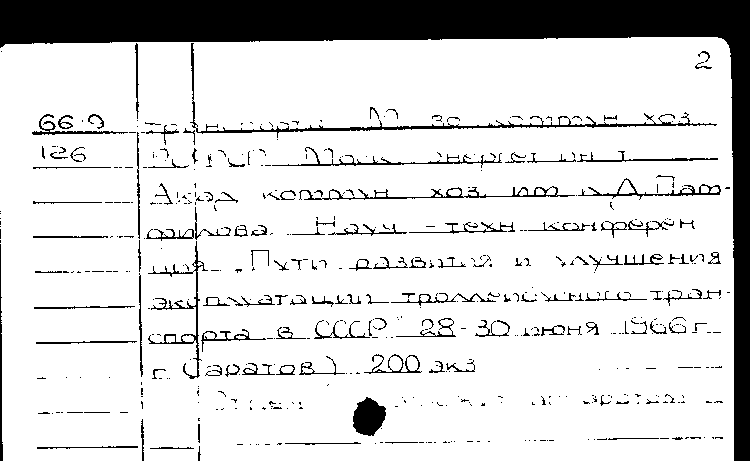 2
66-9 транспорта М-во коммун хоз
126 РСФСР Моск энергет ин-т
Акад коммун хоз им К.Д. Пам-
филова Науч-техн конферен
ция "Пути развития и улучшения
эксплуатации троллейбусного тран-
спорта в СССР" 28-30 июня 1966 г
г Саратов) 200 экз